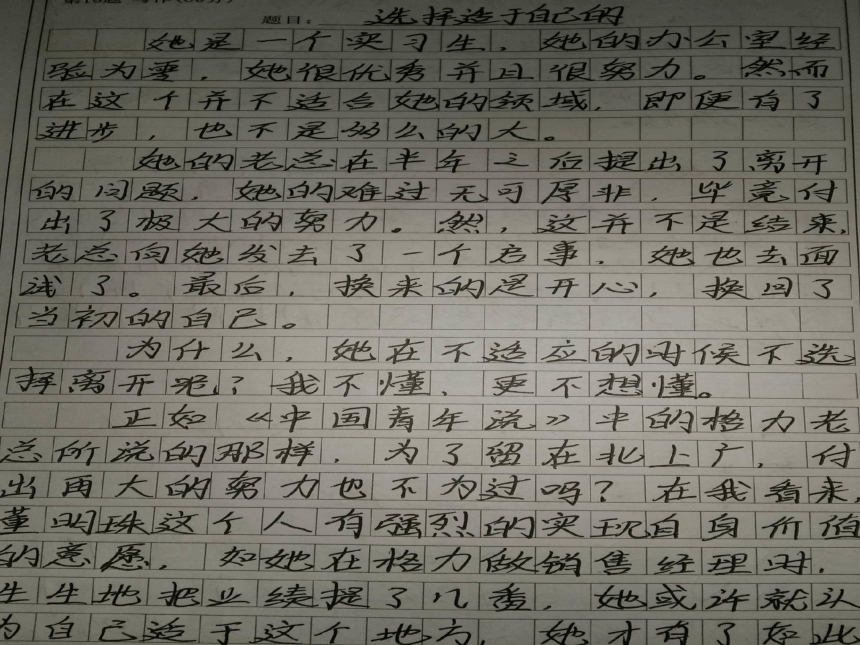 题目： 选择适于自己的
她是一个实习生，她的办公室经
验为零，她很优秀并且很努力。然而
在这个并不适合她的领域，即便有了
进步，也不是多么的大。
她的老总在半年之后提出了离开
的问题，她的难过无可厚非，毕竟付
出了极大的努力。然，这并不是结束，
老总向她发去了一个启事，她也去面
试了。最后，换来的是开心，换回了
当初的自己。
为什么，她在不适应的时候不选
择离开呢？我不懂，更不想懂。
正如《中国青年说》中的格力老
总所说的那样，为了留在北上广，付
出再大的努力也不为过吗？在我看来，
董明珠这个人有强烈的实现自身价值
的意愿，如她在格力做销售经理时，
生生地把业绩提了几番，她或许就认
为自己适于这个地方，她才有了如此